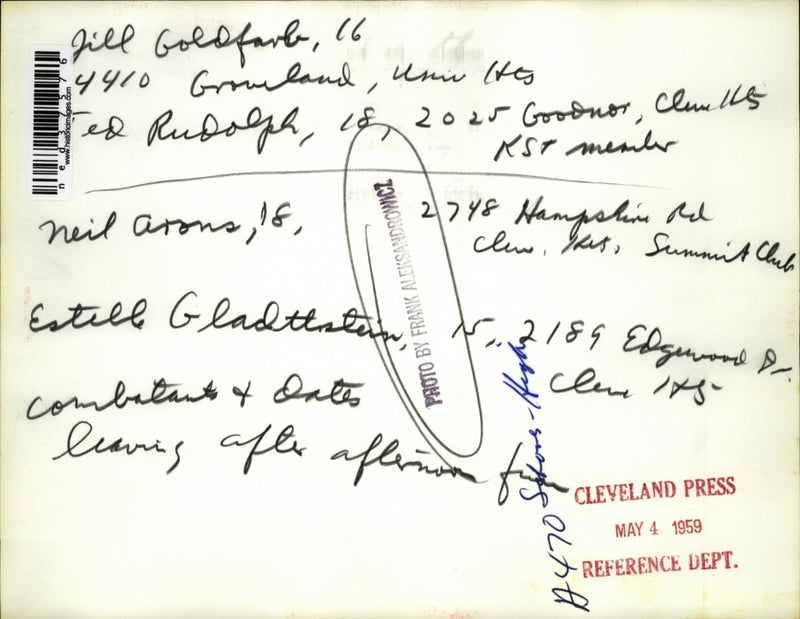 Jill Goldfarb, 16
4410 Groveland, Univ Hts
Ted Rudolph, 18, 2025 Goodnor, Cleve Hts
KST member
Neil Arons, 18, 2748 Hampshire Rd
Cleve. Hts. Summit Club
Estelle Gladttstein, 15, 2189 Edgewood Dr
Cleve Hts
combatants & dates
leaving after afternoon fun
PHOTO BY FRANK ALEKSANDROWICZ
www.historicimages.com
CLEVELAND PRESS
MAY 4 1959
REFERENCE DEPT.